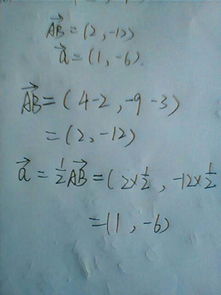 $\overrightarrow{AB}=(2,-12)$
$\vec{a}=(1,-6).$
$\overrightarrow{AB}=(4-2,-9-3)$
$=(2,-12)$
$\vec{a}=\frac{1}{2}\overrightarrow{AB}=(2\times\frac{1}{2},-12\times\frac{1}{2}$
$=(1,-6)$